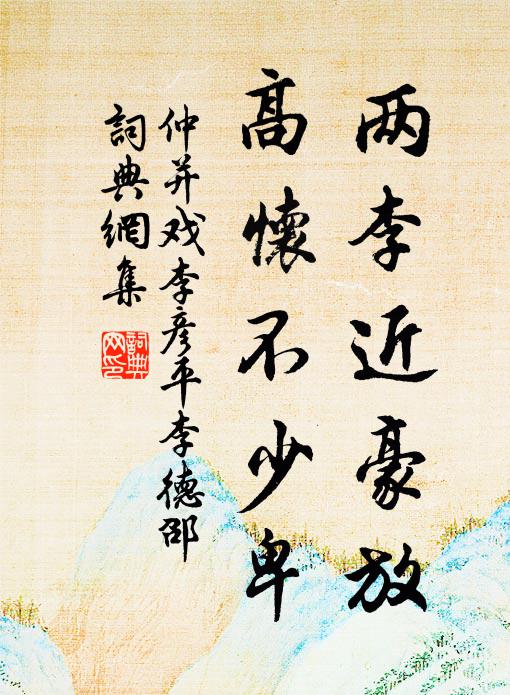 两李近豪放
高怀不少卑
仲并戏李彦平李德邵
詞典網集
詞典网印